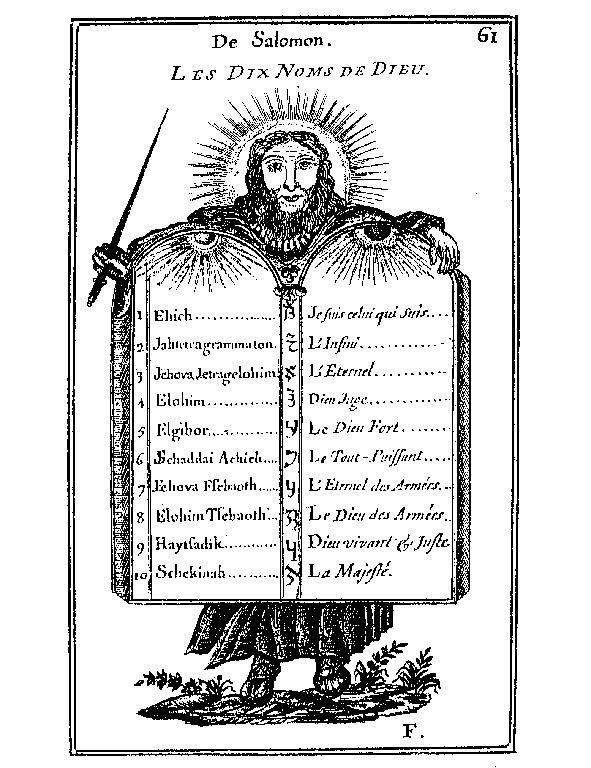 De Salomon. 61
LES DIX NOMS DE DIEU.
1 Ehich................ Je suis celui qui suis....
2 Jahtetragrammaton. L'Infini.............
3 Jehova, Jetragelohim L'Eternel...........
4 Elohim............ Dieu Juge...........
5 Elgibor........... Le Dieu Fort........
6 Schaddai Achieh.... Le Tout-Puissant....
7 Jehova Tsebaoth.... L'Eternel des Armées...
8 Elohim Tsebaoth.... Le Dieu des Armées..
9 Haytsadik......... Dieu vivant & Juste.
10 Schekinah......... La Majesté.
F.